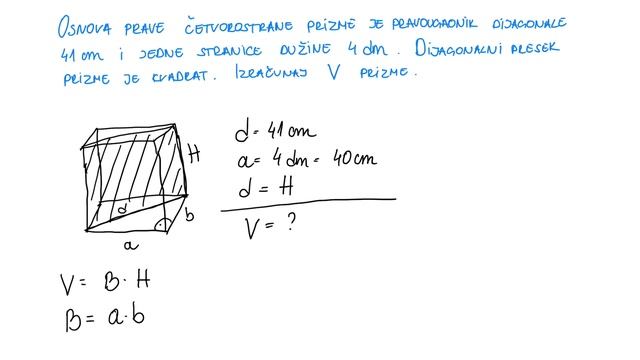 OSNOVA PRAVE ČETVOROSTRANE PRIZME JE PRAVOUGAONIK DIJAGONALE
41 cm I JEDNE STRANICE DUŽINE 4 dm. DIJAGONALNI PRESEK
PRIZME JE KVADRAT. IZRAČUNAJ V PRIZME.
d = 41 cm
a = 4 dm = 40 cm
d = H
V = ?
H
d
b
a
V = B · H
B = a · b